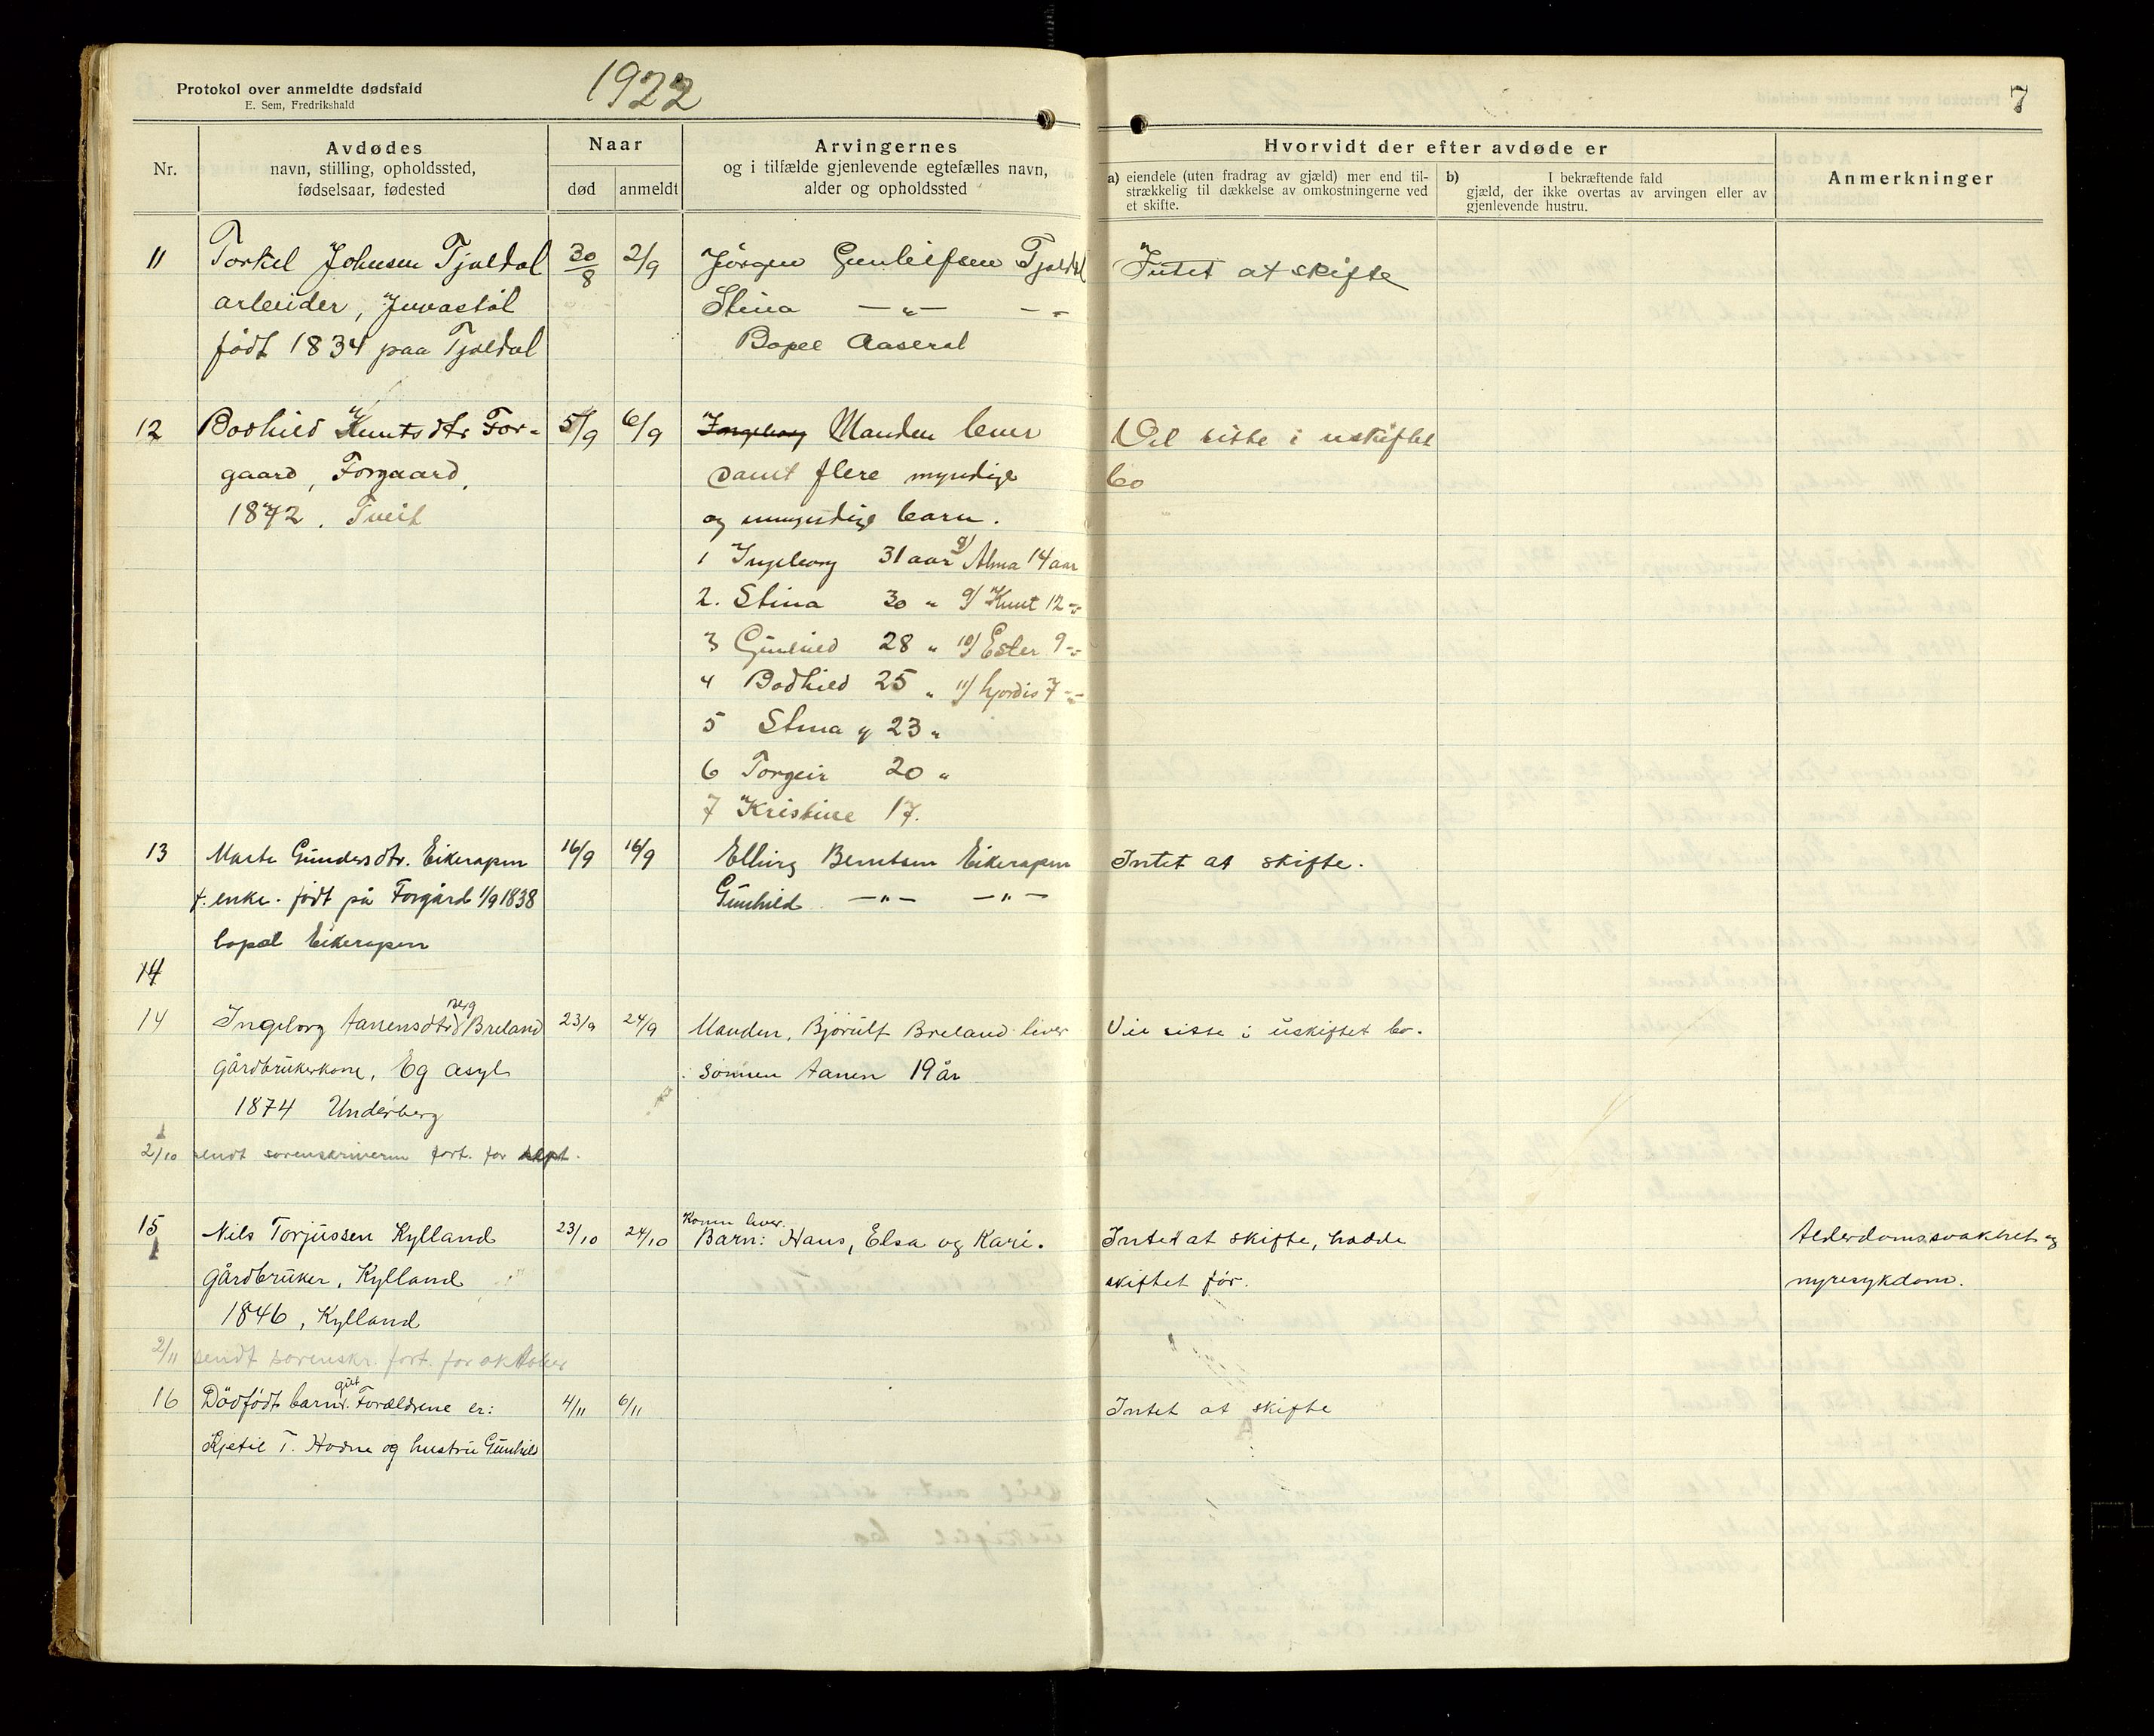 Protokol over anmeldte dødsfald
E. Sem, Fredrikshald
1922
7
Nr.
Avdødes
navn, stilling, opholdssted,
fødselsaar, fødested
Naar
død
anmeldt
Arvingernes
og i tilfælde gjenlevende egtefælles navn,
alder og opholdssted
Hvorvidt der efter avdøde er
a) eiendele (uten fradrag av gjæld) mer end til-
strækkelig til dækkelse av omkostningerne ved
et skifte.
b) I bekræftende fald
gjæld, der ikke overtas av arvingen eller av
gjenlevende hustru.
Anmerkninger
11 Torkel Johnsen Tjaldal 30/8 2/9 Jørgen Gunleifsen Tjaldal Intet at skifte
arbeider, Juvastøl Stina —„— —„
født 1834 paa Tjaldal Bopel Aaseral
12 Bodhild Knutsdtr For- 5/9 6/9 Ingeborg Manden lever Vil sitte i uskiftet
gaard, Forgaard, samt flere myndige bo
1872, Tveit og umyndige barn.
1 Ingeborg 31 aar 8/ Alma 14 aar
2. Stina 30 „ 9/ Knut 12 -„-
3 Gunhild 28 „ 10/ Ester 9 -„-
4 Bodhild 25 „ 11/ Hjordis 7 -„-
5 Stina y 23 „
6 Torgeir 20 „
7 Kristine 17.
13 Marte Gundersdtr. Eikerapen 16/9 16/9 Elling Berntsen Eikerapen Intet at skifte.
f. enke. født på Forgård 1/9 1838 Gunhild —„— —„—
bopæl Eikerapen
14
14 Ingeborg Aanensdtr Breland 23/9 24/9 Manden, Bjørulf Breland lever Vil sitte i uskiftet bo.
gårdbrukerkone, Eg asyl sønnen Aanen 19 år
1874 Underberg
2/10 sendt sorenskriveren fort. for sept.
15 Nils Torjussen Kylland 23/10 24/10 Konen lever. Intet at skifte, hadde Alderdomssvakhet og
Barn: Hans, Elsa og Kari.
gårdbruker, Kylland skiftet før. nyresykdom.
1846, Kylland
2/11 sendt sorenskr. fort. for oktober
16 Dødfødt barn. gut Forældrene er: 4/11 6/11 Intet at skifte
Kjetil T. Hodne og hustru Gunhild